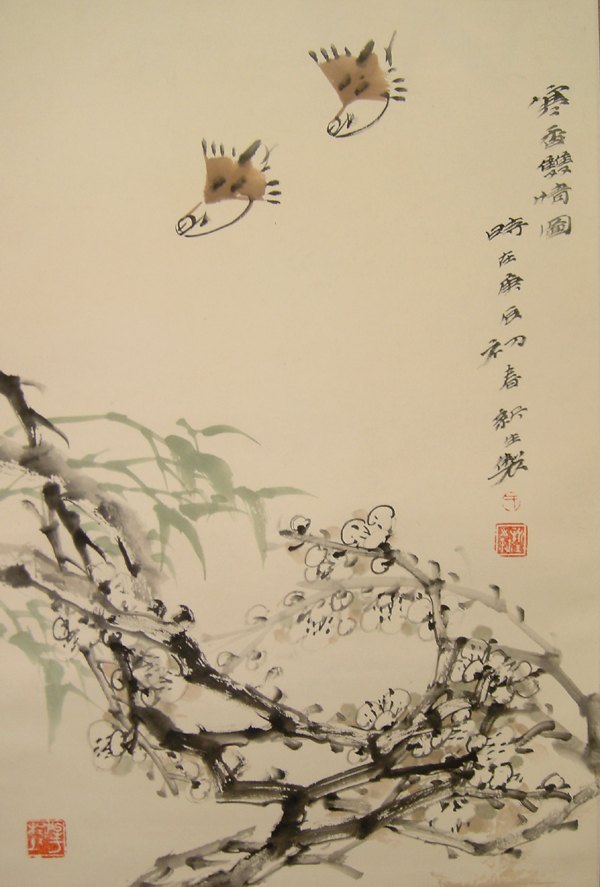 寒香雙清圖
時在庚辰初春新生製